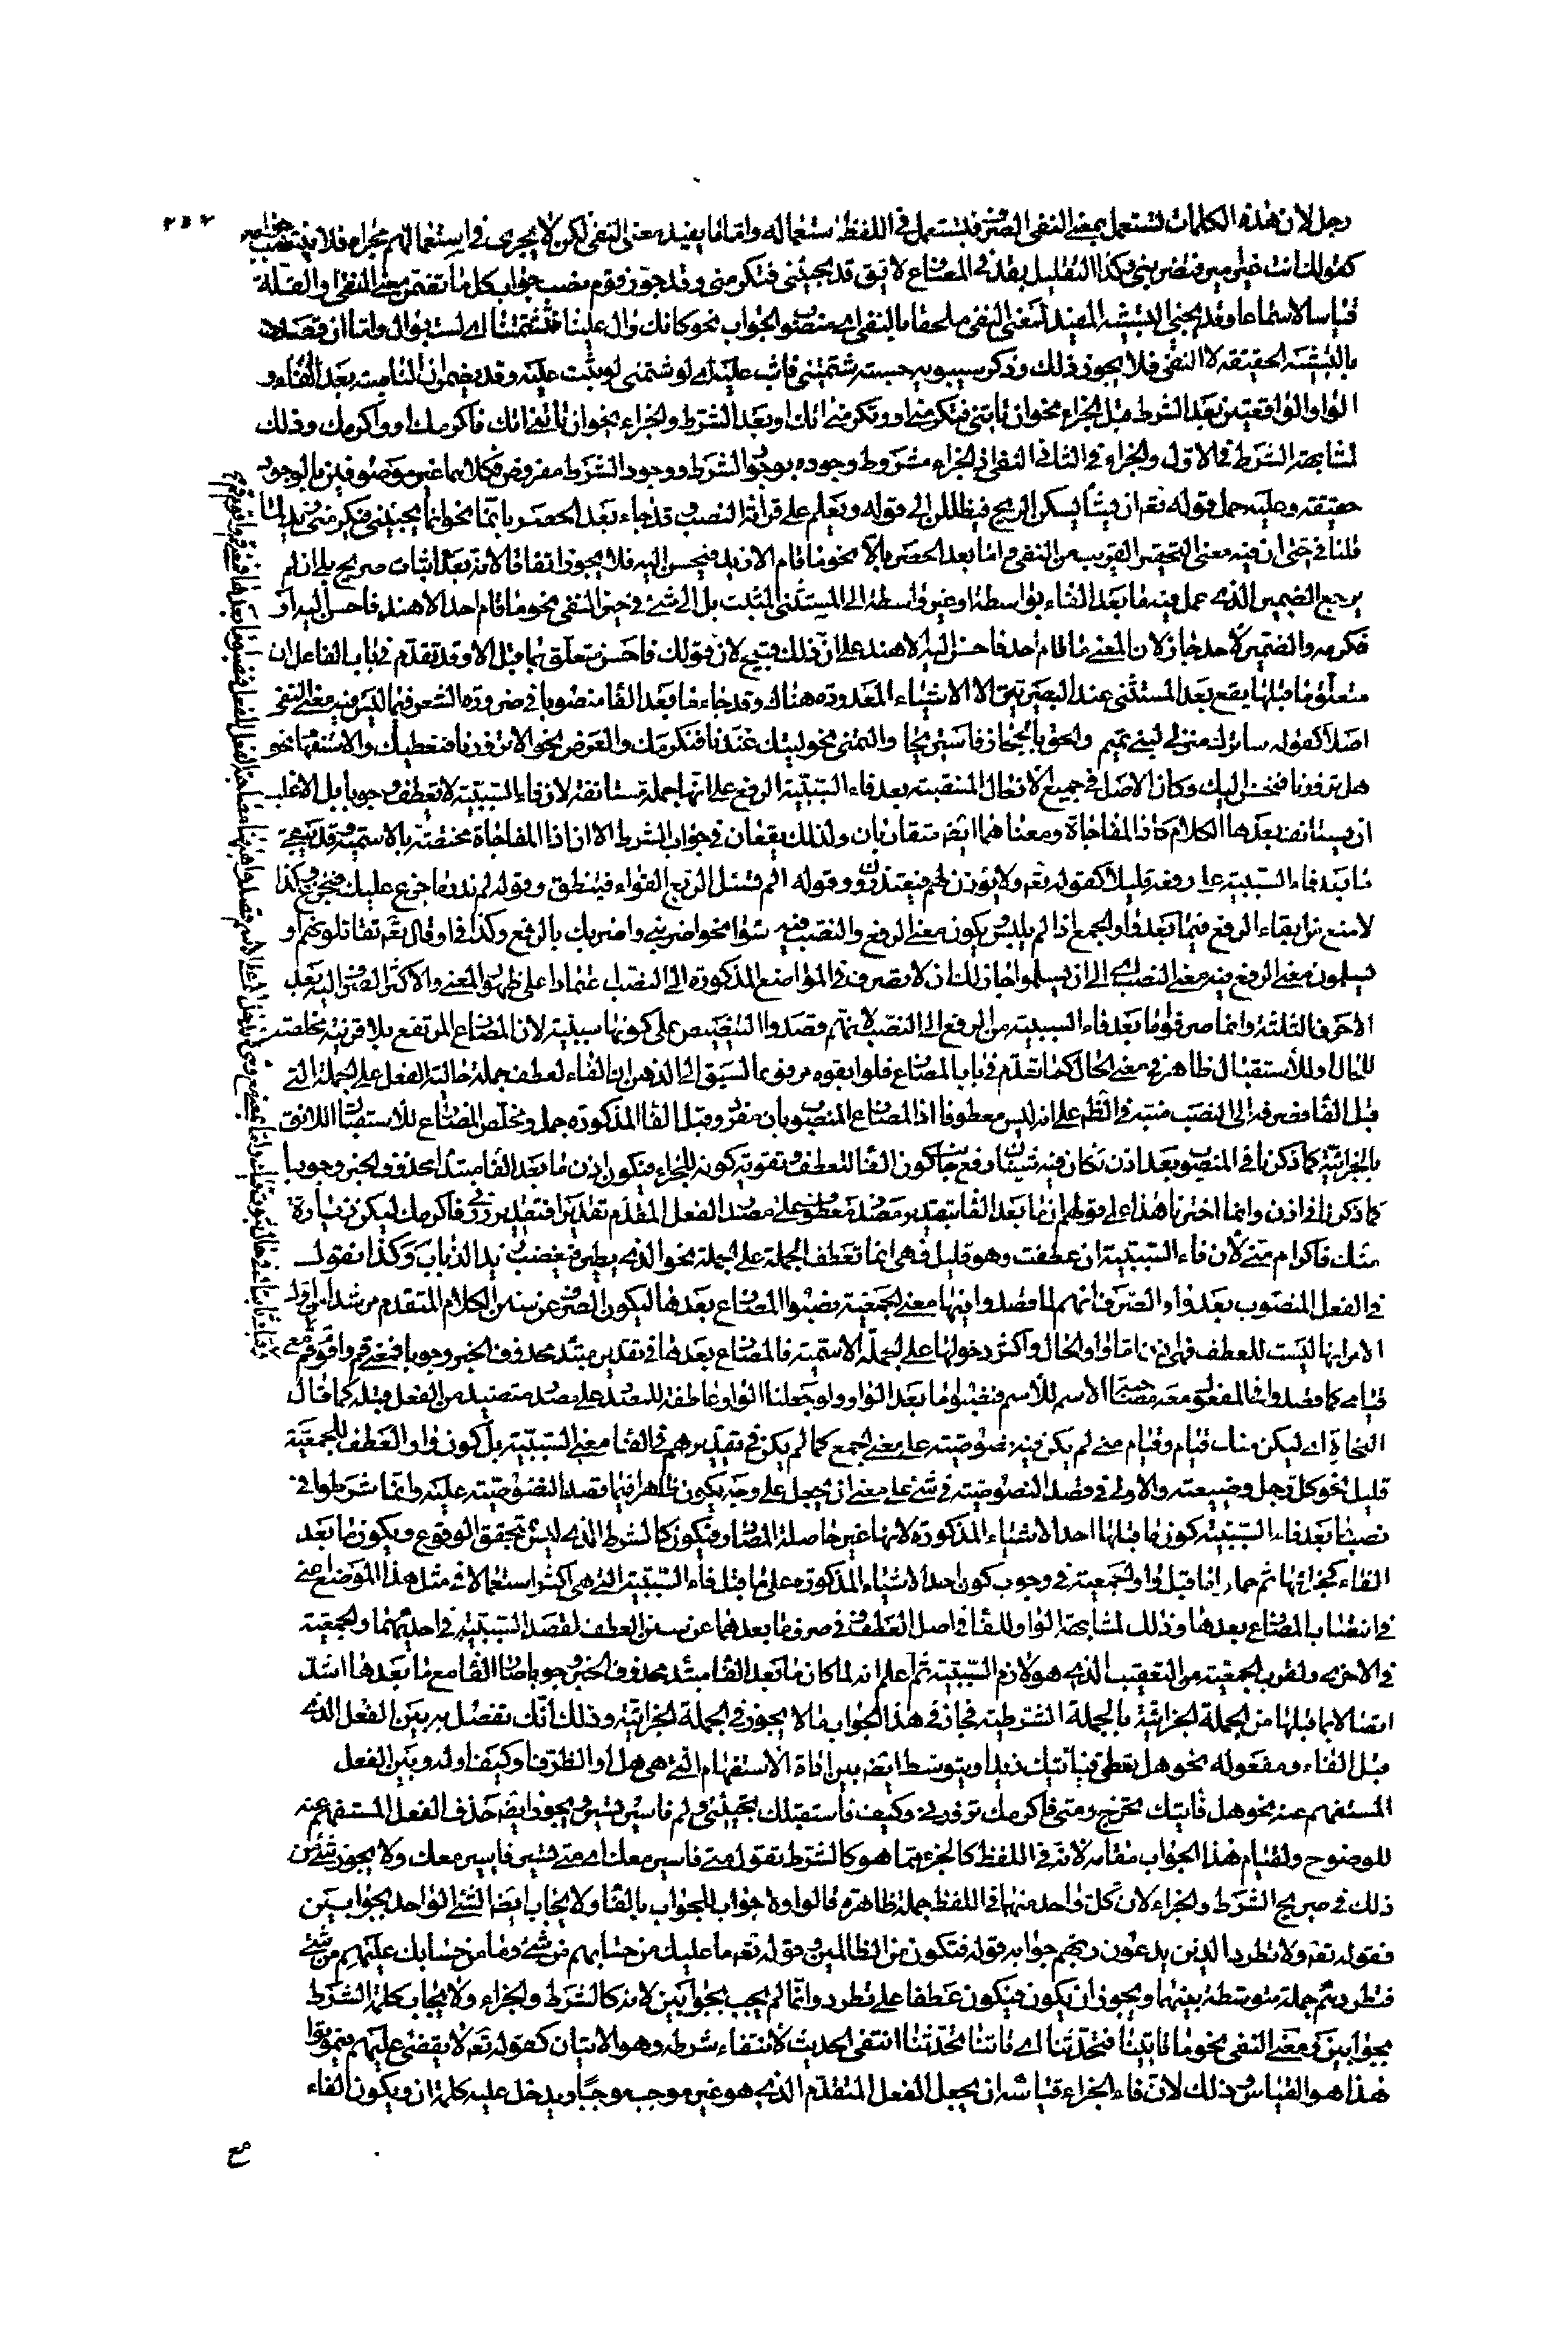 رجل لان هذه الكلمات تستعمل بمعنى النفى الصرف في اللفظ استعماله واما ما يفيد معنى النفى لكن لا يجرى فى استعمالهم مجراه فلا ينتصب جوابه
كقولك انت غير امير فتضربنى وكذا التقليل بقد فى المضارع لا تقول قد تجيئنى فتكرمنى وقد جوز قوم نصب جواب كل ما تضمن معنى النفى او القلة
قياسا لا سماعا وقد يجئ التشبيه المفيد لمعنى النفى ملحقا بالنفى اى منصوب الجواب نحو كانك وال علينا فتشتمنا اى لست بوال واما ان قصد
بالتشبيه الحقيقة لا النفى فلا يجوز ذلك وذكر سيبويه حسبته شتمنى فاثب عليه اى لو شتمنى لوثبت عليه وقد يضمر ان الناصبة بعد الفاء و
الواو الواقعتين بعد الشرط قبل الجزاء نحو ان تاتنى فتكرمنى او وتكرمنى اتك او بعد الشرط والجزاء نحو ان تاتنى اتك فاكرمك او واكرمك وذلك
لمشابهة الشرط فى الاول والجزاء فى الثانى النفى اذ الجزاء مشروط وجوده بوجود الشرط ووجود الشرط مفروض فكلاهما غير موصوفين بالوجود
حقيقة وعليه حمل قوله تعه ان يشأ يسكن الريح فيظللن الى قوله ويعلم على قراءة النصب وقد جاء بعد الحصر بانما نحو انما يجيئنى فيكرمنى زيد لما
قلنا فى ان فيه معنى التحقير القريب من النفى واما بعد الحصر بالا نحو ما قام الا زيد فيحسن اليه فلا يجوز اتفاقا لانه بعد اثبات صريح بلى ان لم
يرجع الضمير الذى عمل فيه ما بعد الفاء بواسطة او غير واسطة الى المستثنى المثبت بل الى شئ فى حيز النفى نحو ما قام احد الا هند فاحسن اليه او
فكرمه والضمير لاحد جاز لان المعنى ما قام احد فاحسن اليه الا هند على ان ذلك قبيح لان قولك فاحسن متعلق بما قبل الا وقد تقدم فى باب الفاعل ان
متعلق ما قبلها يقع بعد المستثنى عند البصريين الا الاشياء المعدودة هناك وقد جاء ما بعد الفا منصوبا فى ضرورة الشعر فيما ليس فيه معنى النفى
اصلا كقوله ساترك منزلى لبنى تميم والحق بالحجاز فاستريحا والتمنى نحو ليتك عندنا فنكرمك والعرض نحو الا تزورنا فنعطيك والاستفهام نحو
هل تزورنا فنحسن اليك وكان الاصل فى جميع الافعال المنتصبة بعد فاء السببية الرفع على انها جملة مستانفة لان فاء السببية لا تعطف وجوبا بل الاغلب
ان يستانف بعدها الكلام كاذا المفاجاة ومعناهما ايضا متقاربان ولذلك يقعان فى جواب الشرط الا ان اذا المفاجاة مختصة بالاسمية وقد يجئ
ما بعد فاء السببية على رفعه قليلا كقوله تعه ولا يؤذن لهم فيعتذرون وقوله الم تسئل الربع القواء فينطق وقوله لم ندر ما جزع عليك فتجزع وكذا
لا منع من ابقاء الرفع فيما بعد واو الجمع اذا لم يلبس يكون معنى الرفع والنصب فيه سواء نحو اضربنى واضربك بالرفع وكذا فى او قال تعه تقاتلونهم او
يسلمون معنى الرفع فيه معنى النصب اى الى ان يسلموا جاز لك ان لا تصرف فى المواضع المذكورة الى النصب اعتمادا على ظهور المعنى والاكثر الصرف اليه بعد
الاحرف الثلثة وانما صرفوا ما بعد فاء السببية من الرفع الى النصب لانهم قصدوا التنصيص على كونها سببية لان المضارع المرتفع بلا قرينة مخلصة
للحال او للاستقبال ظاهر فى معنى الحال كما تقدم فى باب المضارع فلو ابقوه مرفوعا لسبق الى الذهن ان الفاء لعطف جملة حالية الفعل على الجملة التى
قبل الفا فصرفه الى النصب منبه فى الظاهر على انه ليس معطوفا اذ المضارع المنصوب بان مفرد وقبل الفا المذكورة جمل ومخلص المضارع للاستقبال اللائق
بالجزائية كما ذكرنا فى المنصوب بعد اذن فكان فيه شيئان رفع جانب كون الفا للعطف وتقوية كونه للجزاء فيكون اذن ما بعد الفا مبتدا محذوف الخبر وجوبا
كما ذكرنا فى اذن وانما اخترنا هذا على قولهم ان ما بعد الفا بتقدير مصدر معطوف على مصدر الفعل المقدم تقديرا فتقدير زرنى فاكرمك ليكن زيارة
منك فاكرام منى لان فاء السببية ان عطفت وهو قليل فهى انما تعطف الجملة على الجملة نحو الذى يطير فيغضب زيد الذباب وكذا نقول
فى الفعل المنصوب بعد واو الصرف انهم لما قصدوا فيها معنى الجمعية نصبوا المضارع بعدها ليكون الصرف عن سنن الكلام المتقدم مرشدا من اول
الامر انها ليست للعطف فهى اذن اما واو الحال واكثر دخولها على الجملة الاسمية فالمضارع بعدها فى تقدير مبتدا محذوف الخبر وجوبا فمعنى قم واقوم قم مع
قيامى كما قصدوا فى المفعول معه مصاحبة الاسم للاسم فنصبوا ما بعد الواو ولو جعلنا الواو عاطفة للمصدر على مصدر متصيد من الفعل قبله كما قال
النحاة اى ليكن منك قيام وقيام منى لم يكن فيه نصوصية على معنى الجمع كما لم يكن فى تقديرهم فى الفاء معنى السببية بل كون واو العطف للجمعية
قليل نحو كل رجل وضيعته والاولى فى قصد النصوصية فى شئ على معنى ان يجعل على وجه يكون ظاهرا فيما قصد النصوصية عليه وانما شرطوا فى
نصب ما بعد فاء السببية كون ما قبلها احد الاشياء المذكورة لانها غير حاصلة المصادر فيكون كالشرط الذى ليس بمتحقق الوقوع ويكون ما بعد
الفاء كجزائها ثم حملوا ما قبل واو الجمعية فى وجوب كون احد الاشياء المذكورة على ما قبل فاء السببية التى هى اكثر استعمالا فى مثل هذا الموضع اعنى
فى انتصاب المضارع بعدها وذلك لمشابهة الواو للفا فى اصل العطف فى صرف ما بعدهما عن سنن العطف لقصد السببية فى احديهما والجمعية
فى الاخرى ولقرب الجمعية من التعقيب الذى هو لازم السببية ثم اعلم انه لما كان ما بعد الفا مبتدا محذوف الخبر وجوبا صار الفا مع ما بعدها اشد
اتصالا بما قبلها من الجملة الجزائية بالجملة الشرطية فجاز فى هذا الجواب ما لا يجوز فى الجملة الجزائية وذلك انك تفصل به بين الفعل الذى
قبل الفاء ومفعوله نحو هل تعطى فياتيك زيدا ويتوسط ايضا بين اداة الاستفهام التى هى هل او الظرف او كيف اوله وبين الفعل
المستفهم عنه نحو هل فاتيك تخرج ومتى فاكرمك تزورنى وكيف فاستقبلك تجيئنى ولم فاسير تسير ويجوز ايضا حذف الفعل المستفهم عنه
للوضوح ولقيام هذا الجواب مقامه لانه فى اللفظ كالجزء مما هو كالشرط تقول متى فاسير معك اى متى تسير فاسير معك ولا يجوز شئ من
ذلك فى صريح الشرط والجزاء لان كل واحد منهما فى اللفظ جملة ظاهرة قالوا ولا جواب للجواب بالفا ولا يجاب ايضا الشئ الواحد بجوابين
فقوله تعه ولا تطرد الذين يدعون ربهم جوابه قوله فتكون من الظالمين وقوله تعه ما عليك من حسابهم من شئ وما من حسابك عليهم من شئ
فتطردهم جملة متوسطة بينهما ويجوز ان يكون فتكون عطفا على تطرد وانما لم يجب بجوابين لانه كالشرط والجزاء ولا يجاب كلمة الشرط
بجوابين فمعنى النفى نحو ما تاتينا فتحدثنا اى ما تاتنا تحدثنا انتفى الحديث لانتفاء شرطه وهو الاتيان كقوله تعه لا يقضى عليهم فيموتوا
هذا هو القياس وذلك لان فاء الجزاء قياسه ان يجعل الفعل المتقدم الذى هو غير موجب موجبا ويدخل عليه كلمة ان ويكون الفاء
مع